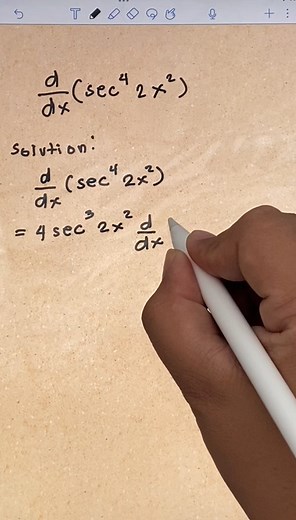 d/dx (sec⁴ 2x²)
Solution:
d/dx (sec⁴ 2x²)
= 4 sec³ 2x² d/dx